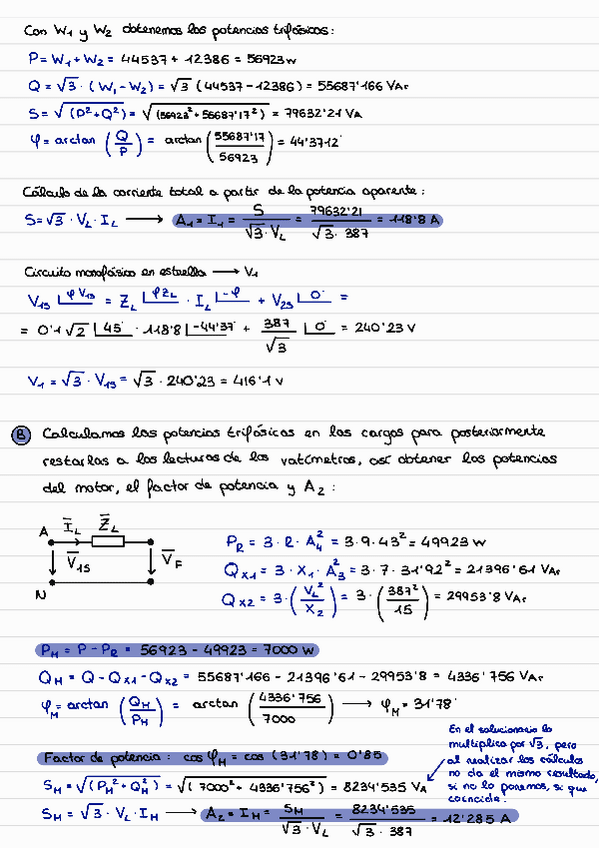 Con W₁ y W₂ obtenemos las potencias trifásicas:
P = W₁ + W₂ = 44537 + 12386 = 56923 W
Q = √3 · (W₁ - W₂) = √3 (44537 - 12386) = 55687'166 VAr
S = √(P² + Q²) = √(56923² + 55687'17²) = 79632'21 VA
φ = arctan (Q/P) = arctan (55687'17/56923) = 44'3712°
Cálculo de la corriente total a partir de la potencia aparente:
S = √3 · V_L · I_L ⟶ A₁ = I₁ = S/(√3 · V_L) = 79632'21/(√3 · 387) = 118'8 A
Circuito monofásico en estrella ⟶ V₁
V₁s |φ V₁s = Z_L |φ Z_L · I_L |-φ + V₂s |0° =
= 0'1 √2 |45° · 118'8 |-44'37° + 387/√3 |0° = 240'23 V
V₁ = √3 · V₁s = √3 · 240'23 = 416'1 V
B Calculamos las potencias trifásicas en las cargas para posteriormente
restarlas a las lecturas de los vatímetros, así obtener las potencias
del motor, el factor de potencia y A₂:
A I̅_L Z̅_L
V̅₁s V̅_F
N
P_R = 3 · R · A₄² = 3 · 9 · 43² = 49923 W
Q_X1 = 3 · X₁ · A₃² = 3 · 7 · 31'92² = 21396'61 VAr
Q_X2 = 3 · (V_L²/X₂) = 3 · (387²/15) = 29953'8 VAr
P_M = P - P_R = 56923 - 49923 = 7000 W
Q_M = Q - Q_X1 - Q_X2 = 55687'166 - 21396'61 - 29953'8 = 4336'756 VAr
φ_M = arctan (Q_M/P_M) = arctan (4336'756/7000) ⟶ φ_M = 31'78°
Factor de potencia: cos φ_M = cos (31'78) = 0'85
S_M = √(P_M² + Q_M²) = √(7000² + 4336'756²) = 8234'535 VA
S_M = √3 · V_L · I_M ⟶ A₂ = I_M = S_M/(√3 · V_L) = 8234'535/(√3 · 387) = 12'285 A
En el solucionario lo
multiplica por √3, pero
al realizar los cálculos
no da el mismo resultado,
si no lo ponemos, si que
coincide.